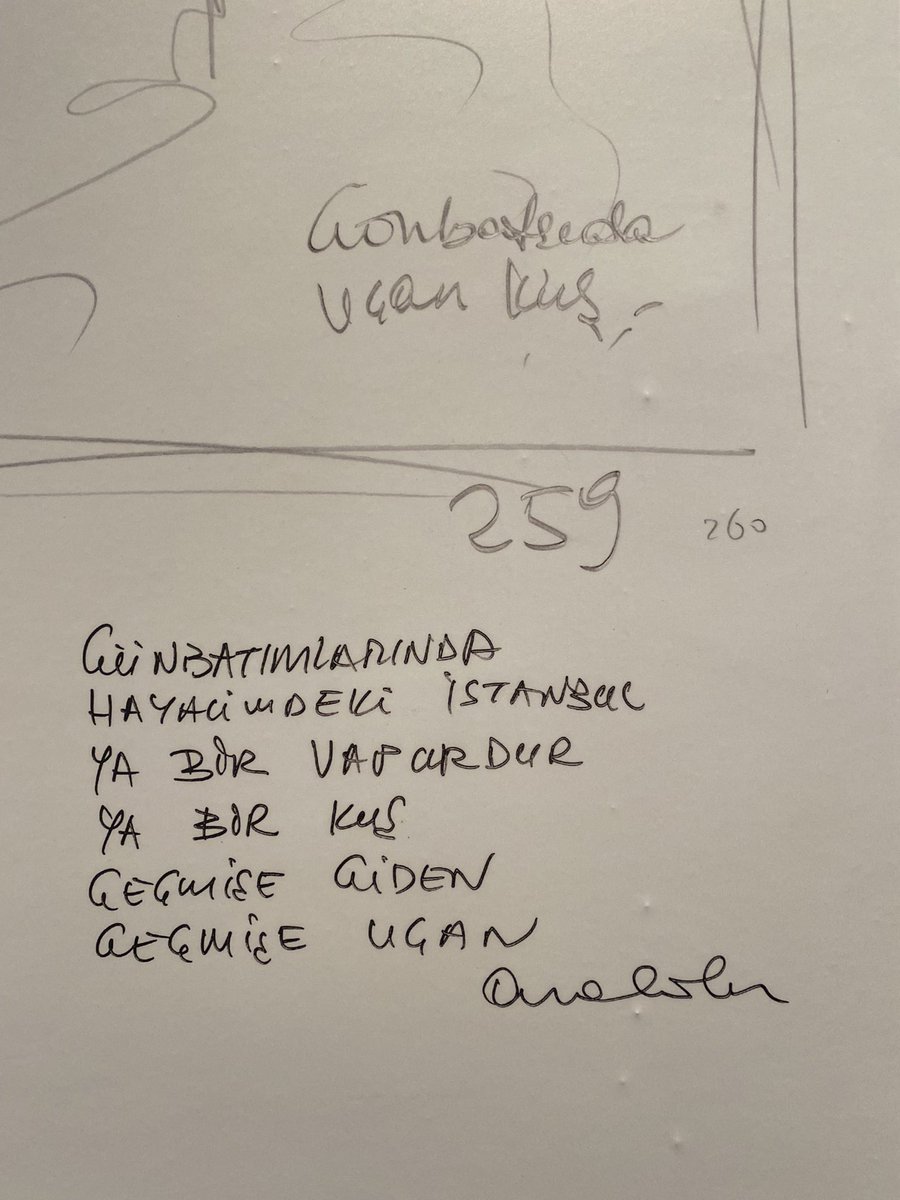 Günbatımında
Uçan Kuş,-
259
260
GÜNBATIMLARINDA
HAYALİMDEKİ İSTANBUL
YA BİR VAPURDUR
YA BİR KUŞ
GEÇMİŞE GİDEN
GEÇMİŞE UÇAN